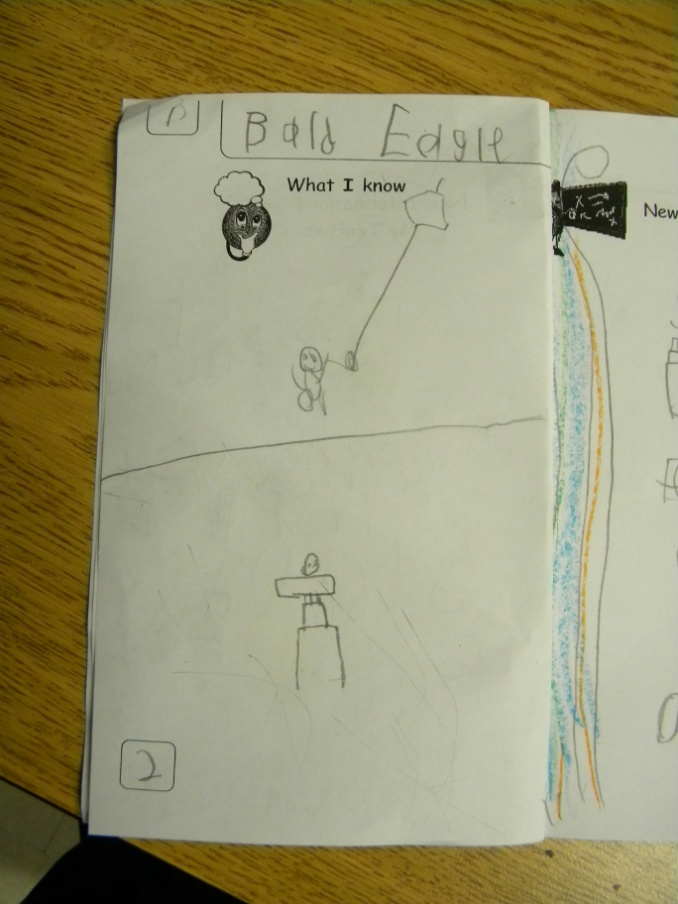 Bald Eagle
What I know
New
2